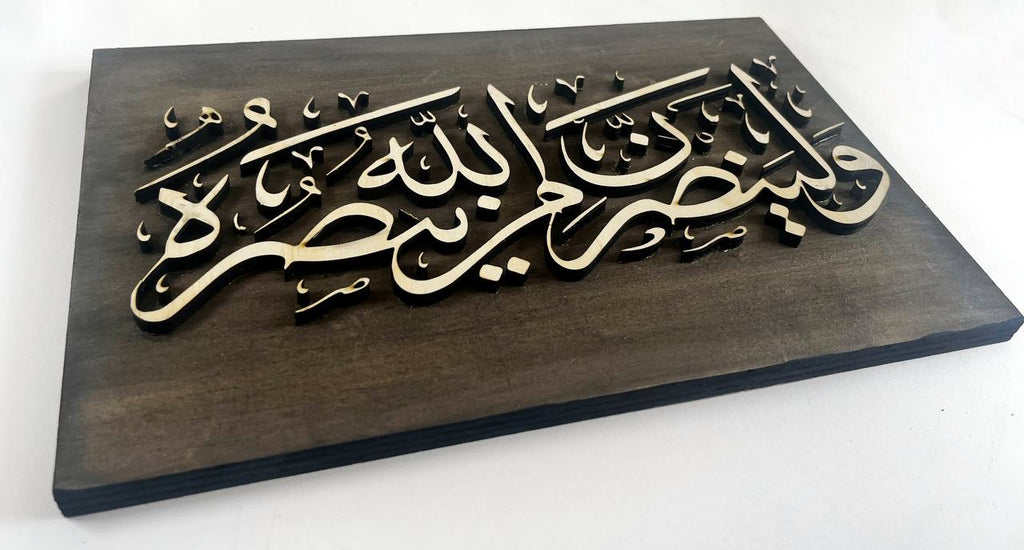 ولينصرن الله من ينصره